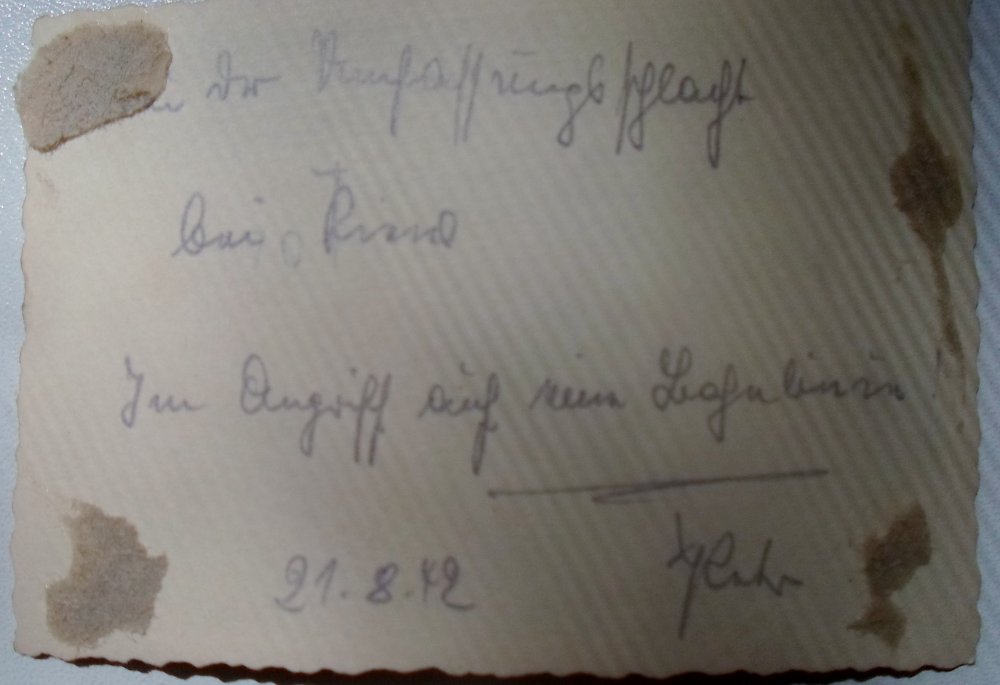 der Umfassungsschlacht
bei Kiew
Im Angriff auf eine Bahnlinie
21.8.42